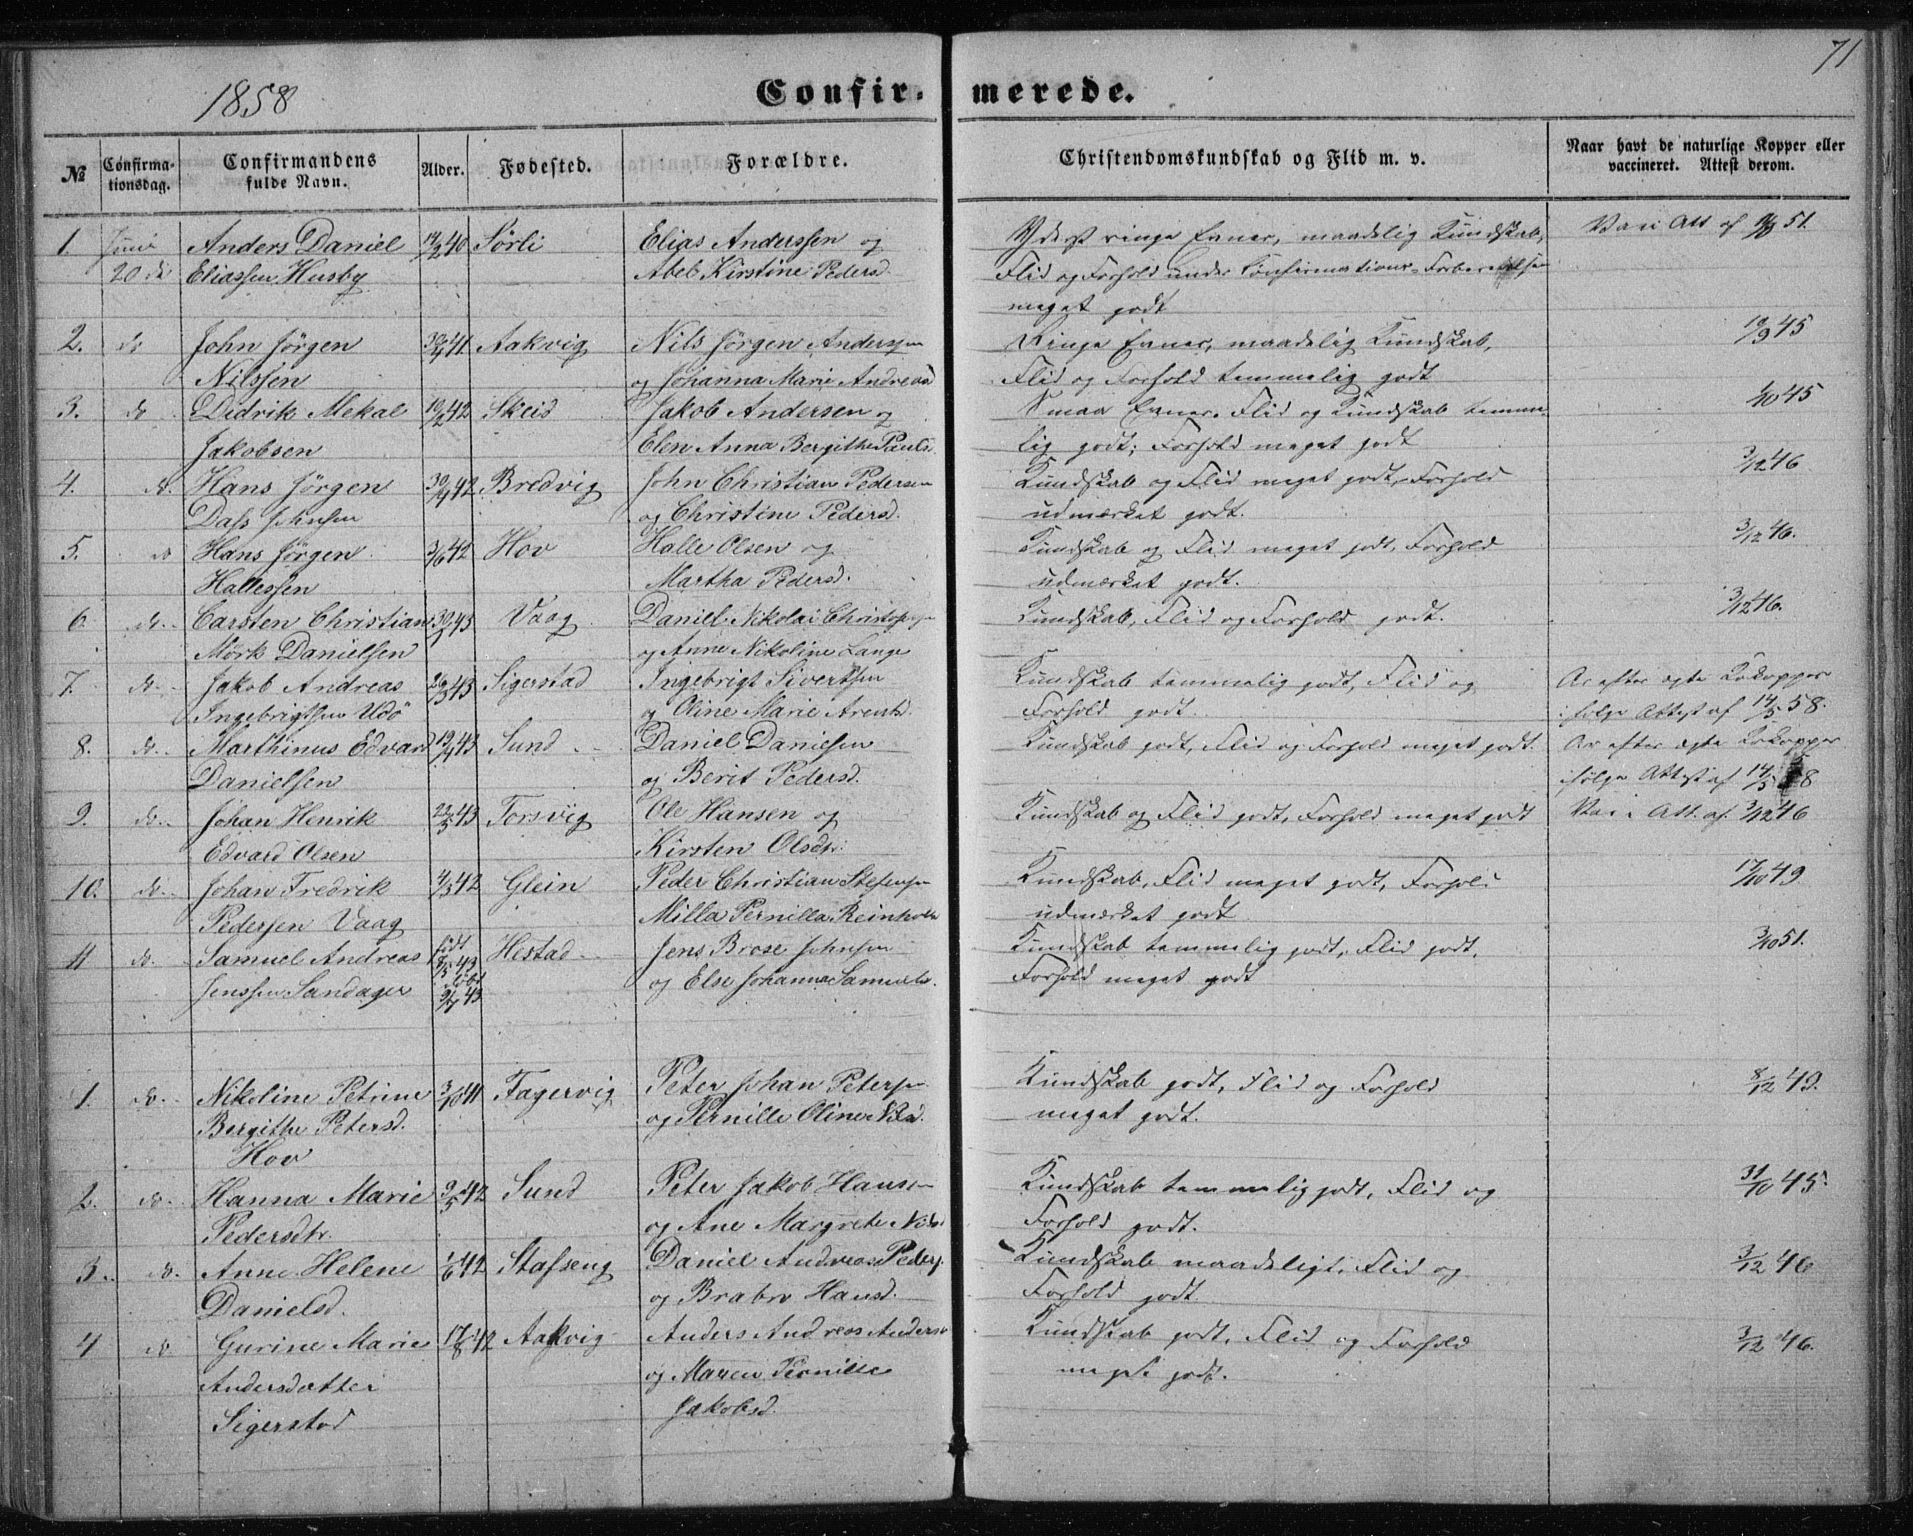 71
1858
Confirmerede.
№ Confirmationsdag. Confirmandens fulde Navn. Alder. Fødested. Forældre. Christendomskundskab og Flid m. v. Naar havt de naturlige Kopper eller vaccineret. Attest derom.
1. Juni Anders Daniel 14/2 40 Sörli Elias Anderssen og Yderst ringe Evner, maadelig Kundskab, Vac: Att af 51.
20 de Eliassen Husby Abel Kirstine Pedersd. Flid og Forhold under Confirmations-Forberedelsen
meget godt
2. do John Jörgen 41 Aakvig Nils Jörgen Anderssen Ringe Evner, maadelig Kundskab, 19/9 45
Nilssen og Johanna Marie Andreasd Flid og Forhold temmelig godt
3. do Didrik Mekal 19/2 42 Skeid Jakob Andersen og Smaa Evner. Flid og Kundskab temme- 1/10 45
Jakobsen Elen Anna Bergithe Pauls. lig godt; Forhold meget godt
4. do Hans Jörgen 42 Bredvig John Christian Pedersen Kundskab og Flid meget godt, Forhold 3/12 46
Dass Johnsen og Christine Pedersd. udmærket godt.
5. do Hans Jörgen 3/6 42 Hov Halle Olsen og Kundskab og Flid meget godt, Forhold 3/12 46.
Hallessen Martha Pedersd. udmærket godt.
6. do. Carsten Christian Vaag Daniel Nikolai Christophersen Kundskab, Flid og Forhold godt. 3/12 46.
Mörk Danielsen og Anne Nikoline Lange
7. do. Jakob Andreas 43 Sigerstad Ingebrigt Sivertsen Kundskab temmelig godt, Flid og Ar efter ægte Kokopper
Ingebrigtsen Udö og Oline Marie Arentsd. Forhold godt. ifølge Attest af 14/5 58.
8. do. Marthinus Edvard 19/4 43 Sund Daniel Danielsen Kundskab godt, Flid og Forhold meget godt. Ar efter ægte Kokopper
Danielsen og Berit Pedersd. ifølge Attest af 14/5 58
9. do. Johan Henrik 22/5 43 Forsvig Ole Hansen og Kundskab og Flid godt, Forhold meget godt Vac: Att. af 3/12 46
Edvard Olsen Kirsten Olsdtr.
10. do. Johan Fredrik 4/3 42 Glein Peder Christian Stefensen Kundskab, Flid meget godt, Forhold 17/10 49
Pedersen Vaag Milla Pernilla Reinholds udmærket godt
11 do. Samuel Andreas födt 43 Hestad Jens Brose Johnsen Kundskab temmelig godt, Flid godt, 3/10 51.
Jenssen Sandager döbt 43 og Else Johanna Samuelsd. Forhold meget godt
1. do. Nikoline Petrine 3/10 41 Fagervig Peter Johan Petersen Kundskab godt, Flid og Forhold 8/12 49.
Bergithe Petersd. og Pernille Oline meget godt.
Hov
2. do. Hanna Marie 9/5 42 Sund Peter Jakob Hansen Kundskab temmelig godt, Flid og 31/10 45.
Pedersdtr. og Ane Margrete Nils Forhold godt.
3. do. Anne Helene 1/6 42 Stafseng Daniel Andreas Peders. Kundskab maadeligt, Flid og 3/12 46
Danielsd. og Brabro Hansd. Forhold godt.
4 do Gurine Marie 17/8 42 Aakvig Anders Andreas Anders. Kundskab godt, Flid og Forhold 3/12 46.
Andersdatter og Maren Pernille meget godt.
Sigerstad Jakobsd.